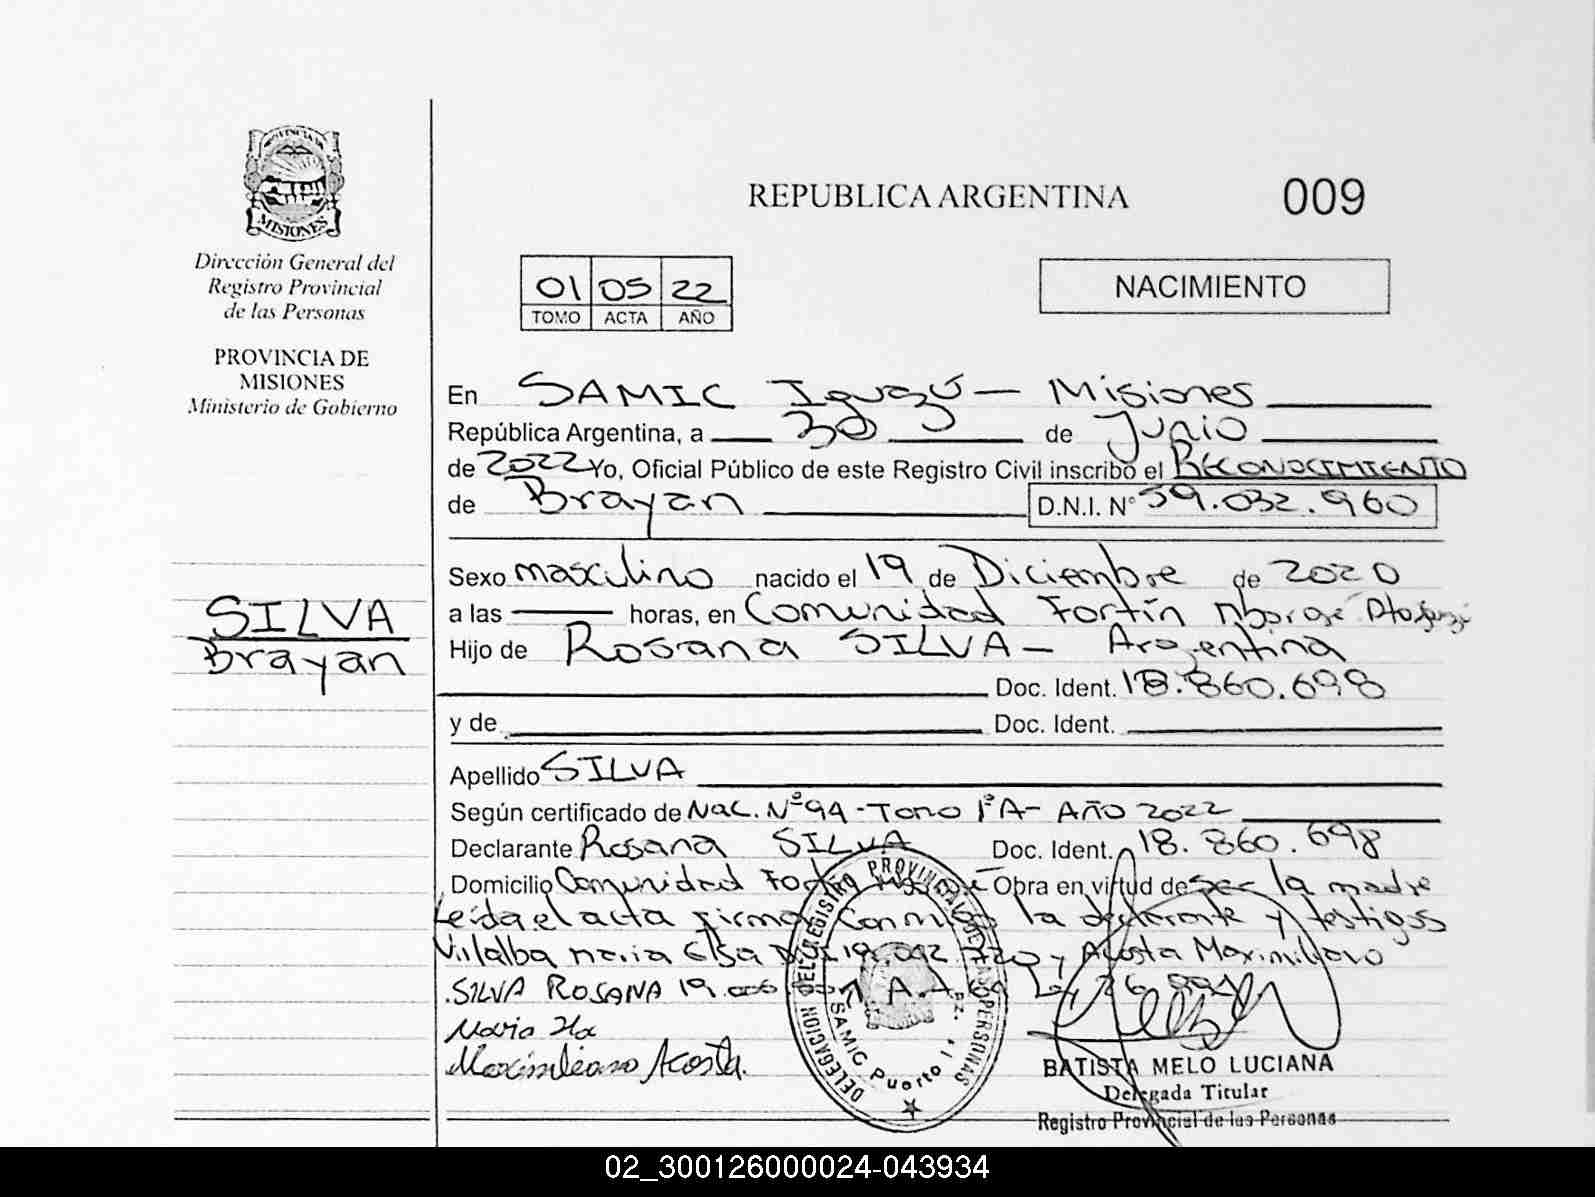 PROVINCIA DE
MISIONES
Dirección General del
Registro Provincial
de las Personas
PROVINCIA DE
MISIONES
Ministerio de Gobierno
SILVA
Brayan
REPUBLICA ARGENTINA 009
01 05 22
TOMO ACTA AÑO
NACIMIENTO
En SAMIC Iguazú - Misiones
República Argentina, a 30 de Junio
de 2022 Yo, Oficial Público de este Registro Civil inscribo el RECONOCIMIENTO
de Brayan D.N.I. N° 59.032.960
Sexo masculino nacido el 19 de Diciembre de 2020
a las horas, en Comunidad Fortín Mbororé
Hijo de Rosana SILVA - Argentina
Doc. Ident. 18.860.698
y de Doc. Ident.
Apellido SILVA
Según certificado de Nac. N° 94 - Tomo 1°A - AÑO 2022
Declarante Rosana SILVA Doc. Ident. 18.860.698
Domicilio Comunidad Obra en virtud de ser la madre
Leida el acta firma Conmigo la declarante y testigos
Villalba Maria Elsa y Acosta Maximiliano
SILVA ROSANA
Maria
Maximiliano Acosta.
DELEGACION DEL REGISTRO PROVINCIAL DE LAS PERSONAS
SAMIC Puerto
BATISTA MELO LUCIANA
Delegada Titular
Registro Provincial de las Personas
02_300126000024-043934